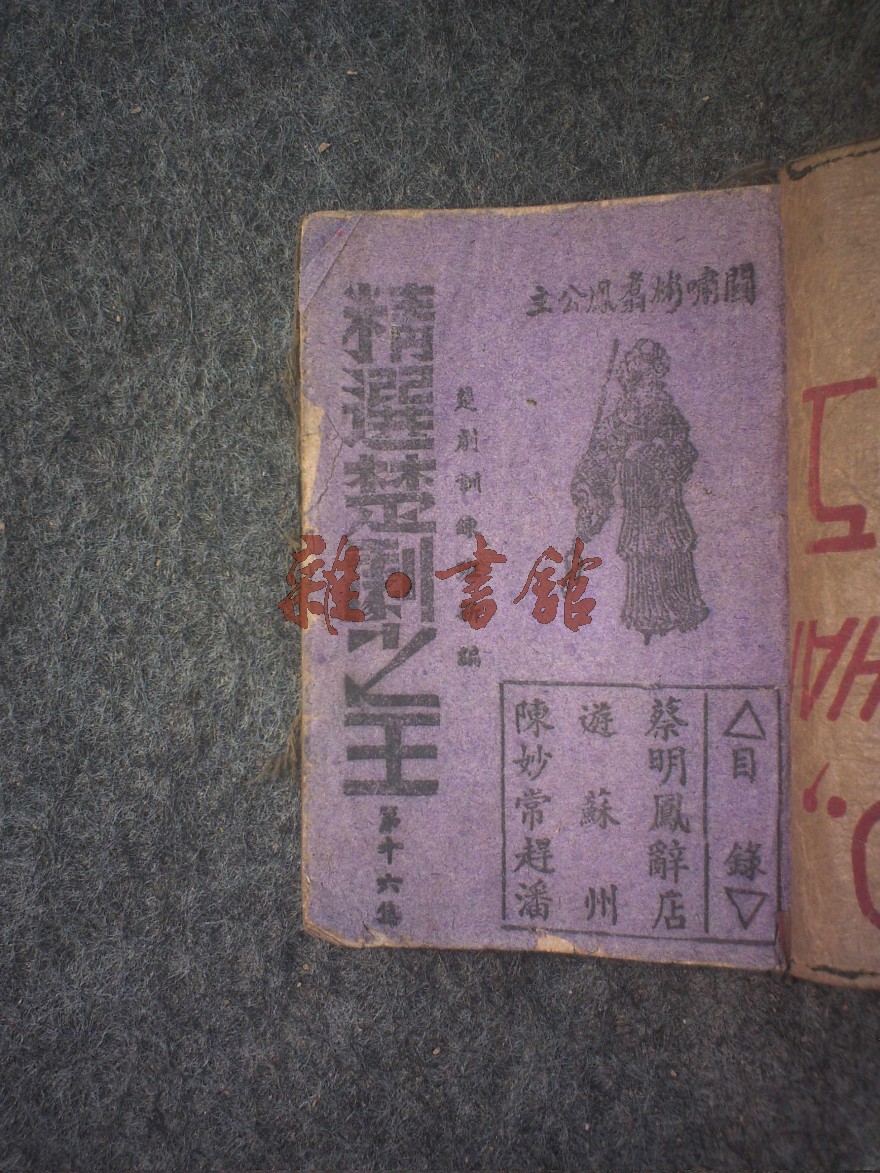 關嘯彬鳳公主
△目錄▽
蔡明鳳辭店
遊蘇州
陳妙常趕潘
楚劇訓練編
精選楚劇之王
第十六集
雜·書舘